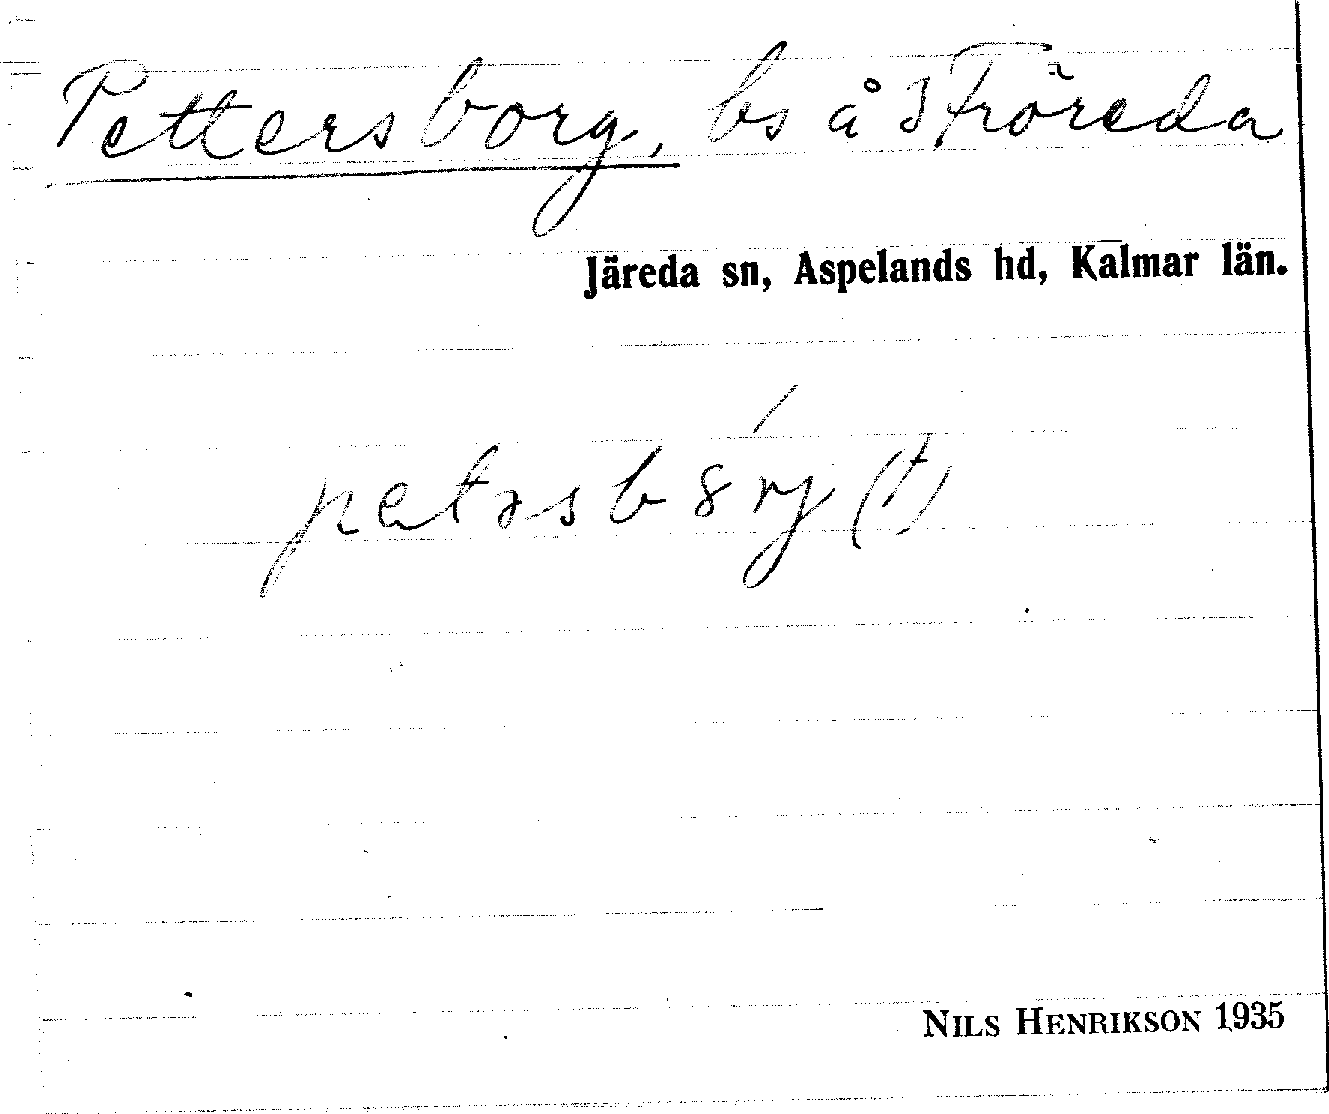 Pettersborg, bs å 3 Fröreda
Järeda sn, Aspelands hd, Kalmar län.
NILS HENRIKSON 1935